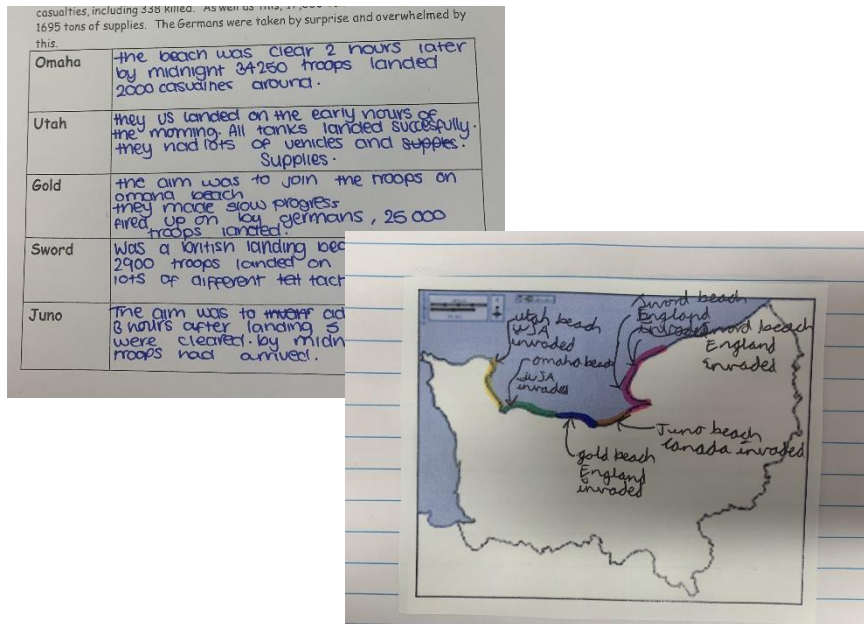 casualties, including 338 killed. As well as this, 17,
1695 tons of supplies. The Germans were taken by surprise and overwhelmed by
this.
Omaha
the beach was clear 2 hours later
by midnight 34250 troops landed
2000 casualties around.
Utah
they US landed on the early hours of
the morning. All tanks landed succesfully.
they had lots of vehicles and supples.
Supplies.
Gold
the aim was to join the troops on
omaha beach
they made slow progress
fired up on by germans, 25 000
troops landed.
Sword
Was a british landing bea
2900 troops landed on
lots of different tat tact
Juno
The aim was to ad
3 hours after landing 5
were cleared. by midn
troops had arrived.
utah beach
USA
invaded
omaha beach
USA
invaded
Sword beach
England
invaded
Sword beach
England
invaded
Juno beach
Canada invaded
gold beach
England
invaded